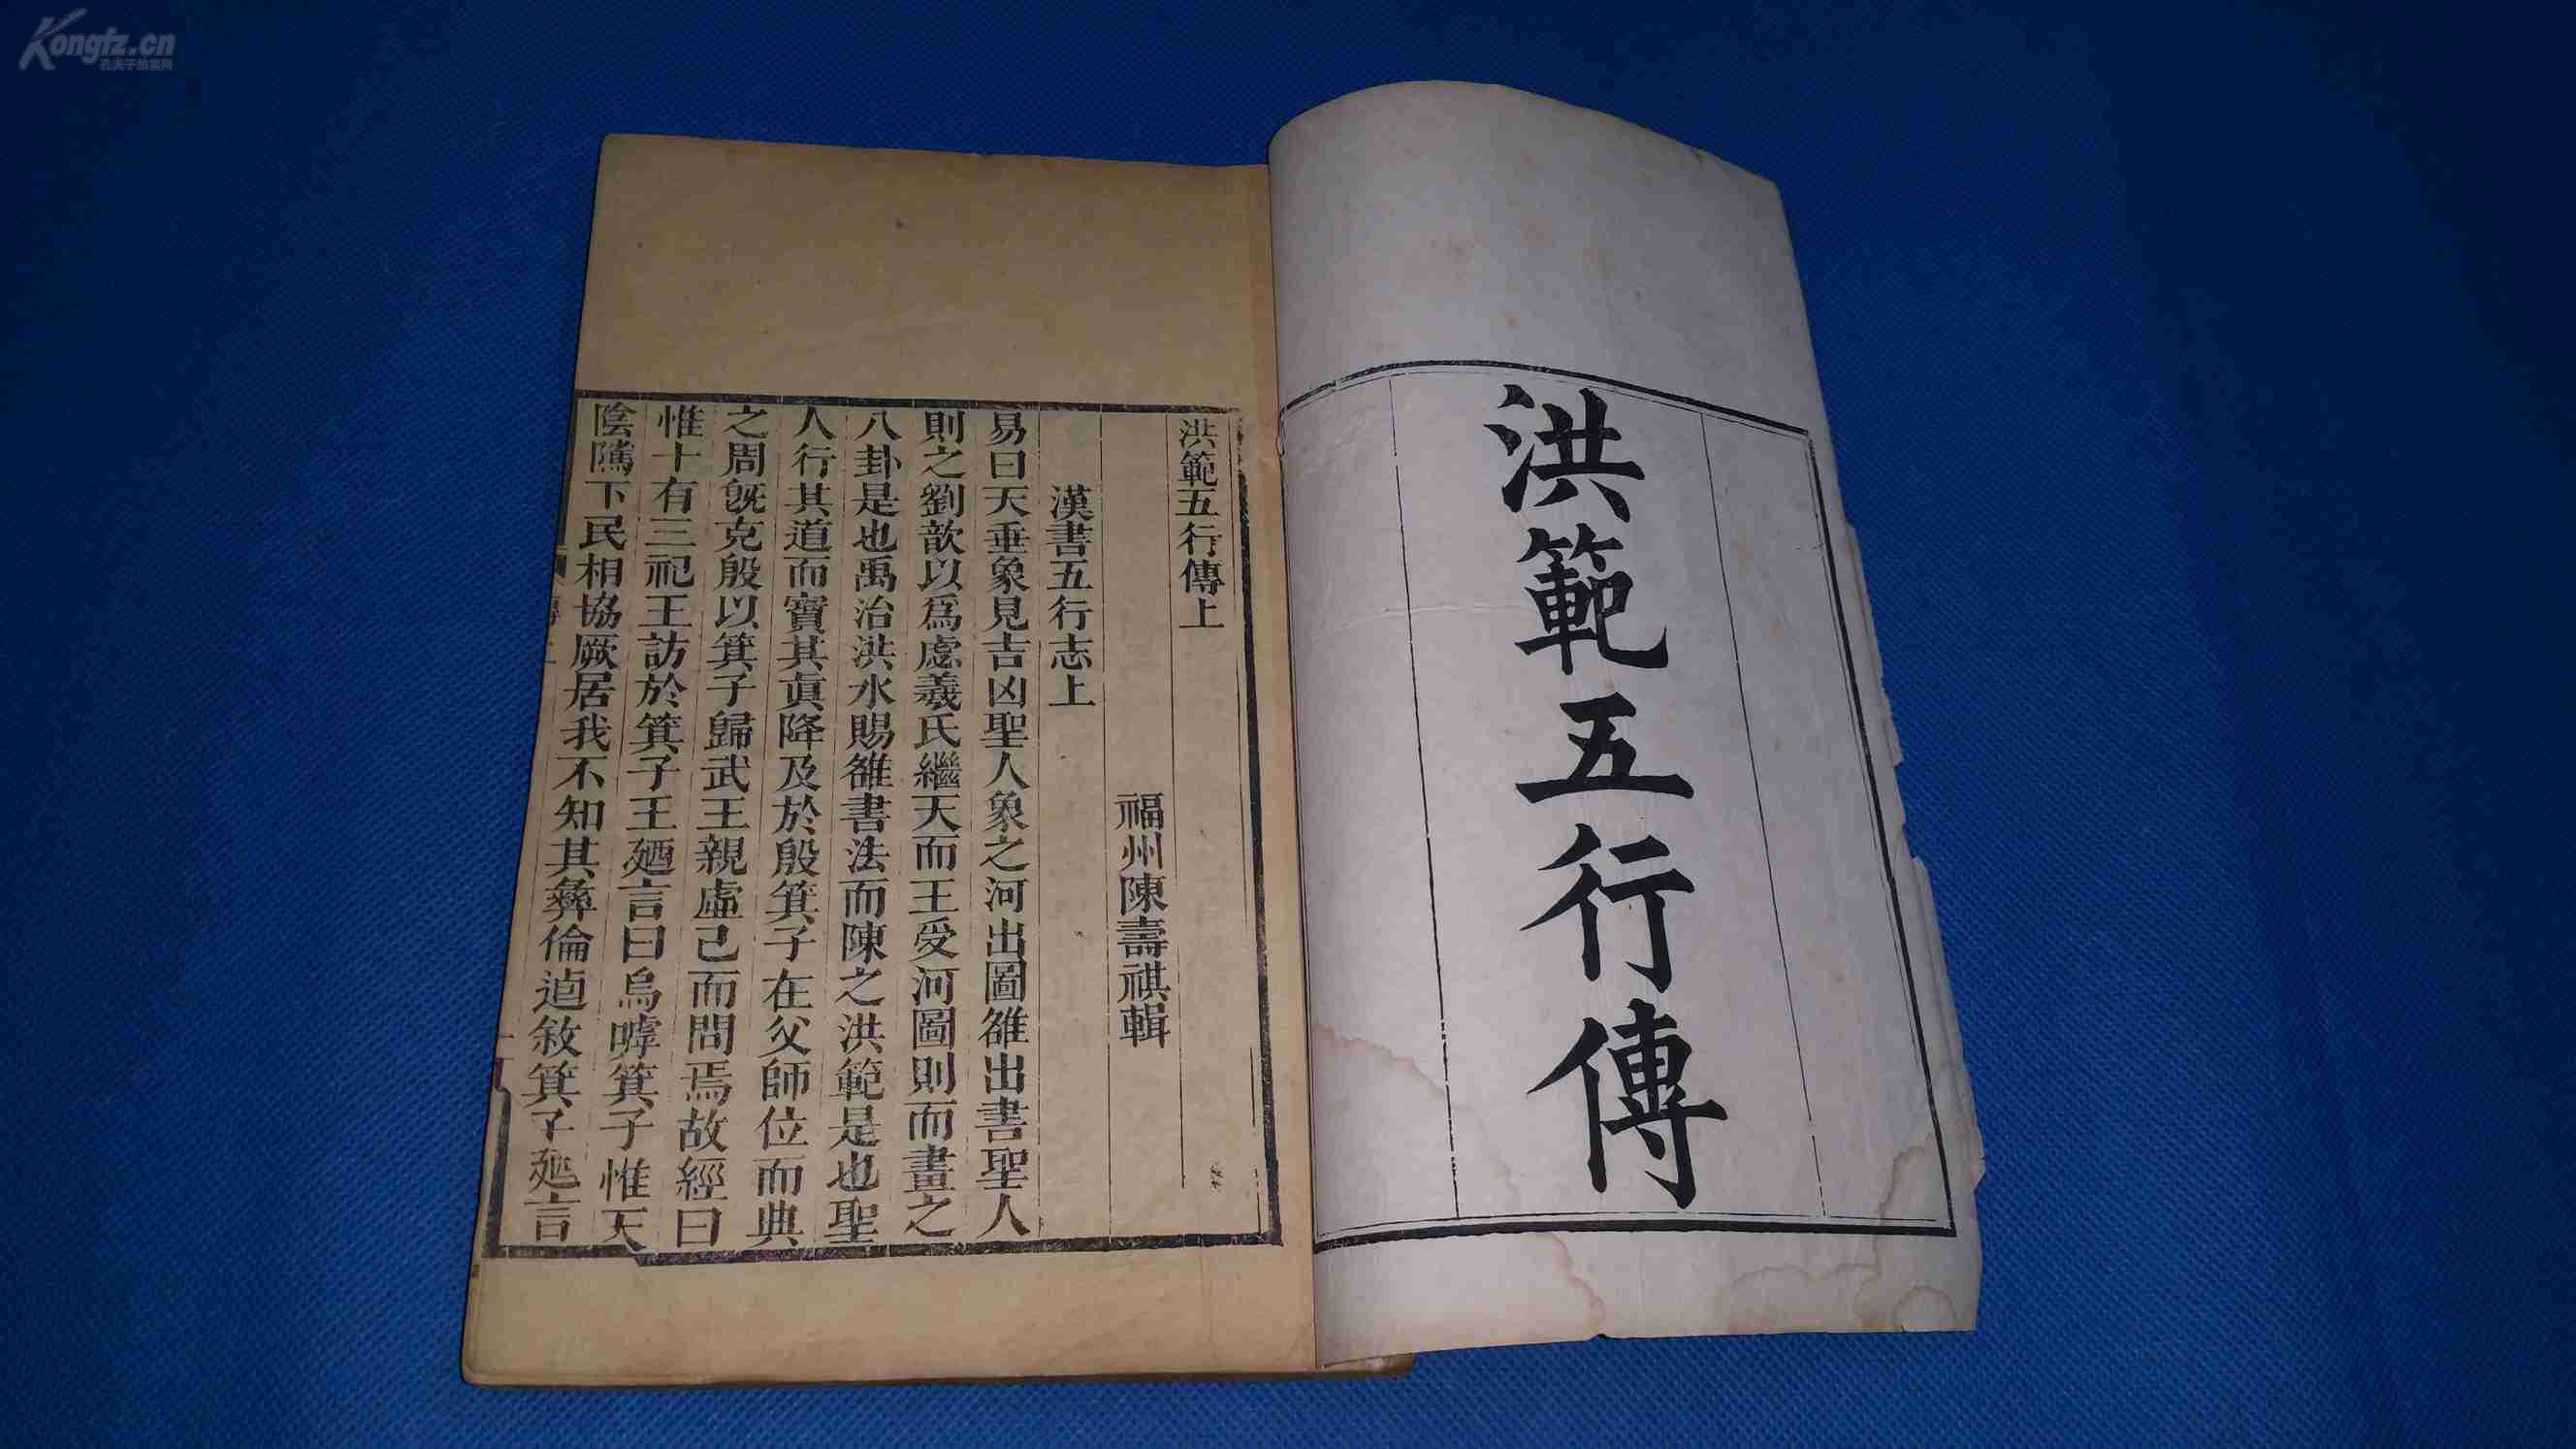 Kongfz.cn
孔夫子拍卖网
洪範五行傳
洪範五行傳上
福州陳壽祺輯
漢書五行志上
易曰天垂象見吉凶聖人象之河出圖雒出書聖人
則之劉歆以爲虙羲氏繼天而王受河圖則而畫之
八卦是也禹治洪水賜雒書法而陳之洪範是也聖
人行其道而寶其眞降及於殷箕子在父師位而典
之周旣克殷以箕子歸武王親虛己而問焉故經曰
惟十有三祀王訪於箕子王廼言曰烏嘑箕子惟天
陰隲下民相協厥居我不知其彝倫逌敘箕子廼言